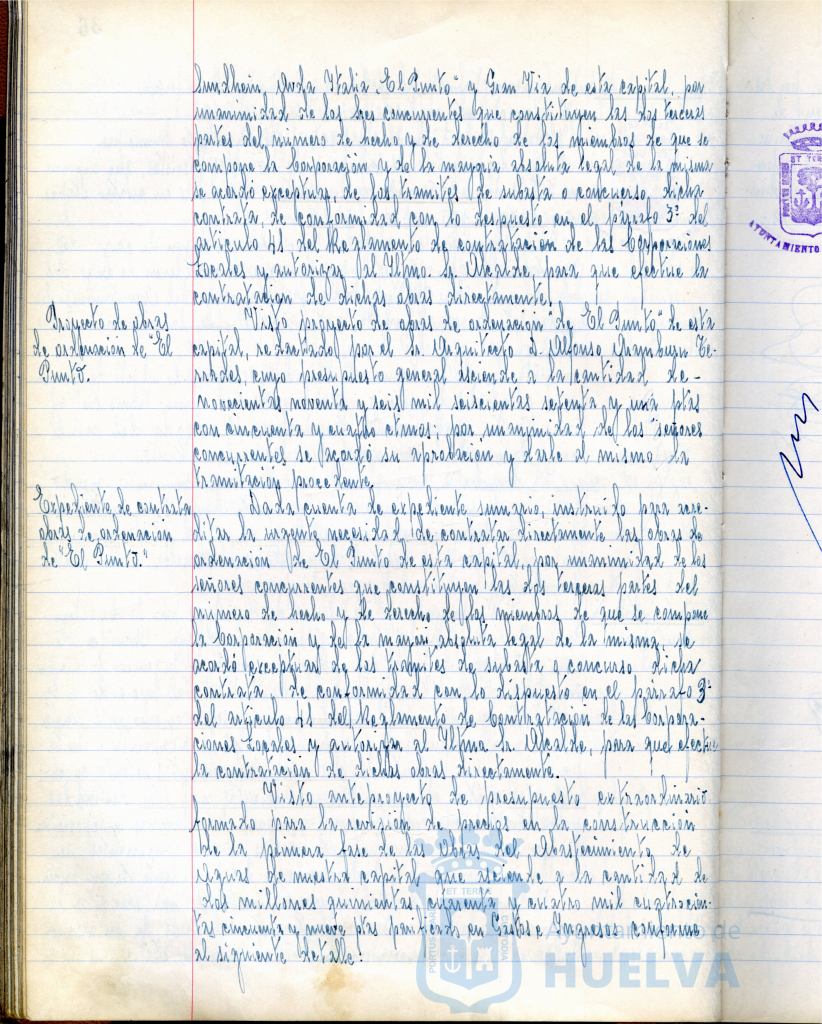 Sundheim, Avda Italia "El Punto" y Gran Via de esta capital, por
unanimidad de los Sres concurrentes que constituyen las dos terceras
partes del número de hecho y de derecho de los miembros de que se
compone la Corporación y de la mayoria absoluta legal de la misma
se acordó exceptuar, de los tramites de subasta o concurso, dicha
contrata, de conformidad con lo dispuesto en el párrafo 3º del
articulo 41 del Reglamento de contratación de las Corporaciones
Locales y autorizar al Iltmo. Sr. Alcalde, para que efectue la
contratación de dichas obras directamente.
Proyecto de obras
de ordenación de "El
Punto".
Visto proyecto de obras de ordenación "de El Punto" de esta
capital, redactado por el Sr. Arquitecto D. Alfonso Aramburu Te-
rrades, cuyo presupuesto general asciende a la cantidad de
novecientas noventa y seis mil seiscientas setenta y una ptas
con cincuenta y cuatro ctmos; por unanimidad de los señores
concurrentes se acordó su aprobación y darle al mismo la
tramitación procedente.
Expediente de contrata
obras de ordenación
de "El Punto."
Dada cuenta de expediente sumario, instruido para acre-
ditar la urgente necesidad de contratar directamente las obras de
ordenación de El Punto de esta capital, por unanimidad de los
señores concurrentes que constituyen las dos terceras partes del
número de hecho y de derecho de los miembros de que se compone
la Corporación y de la mayori absoluta legal de la misma, se
acordó exceptuar de los tramites de subasta o concurso dicha
contrata, de conformidad con lo dispuesto en el parrafo 3º
del articulo 41 del Reglamento de Contratación de las Corpora-
ciones Locales y autorizar al Iltmo Sr. Alcalde, para que efectue
la contratación de dichas obras directamente.
Visto anteproyecto de presupuesto extraordinario
formado para la revisión de precios en la construcción
de la primera fase de las obras del Abastecimiento de
Aguas de nuestra capital que asciende a la cantidad de
dos millones quinientas cuarenta y cuatro mil cuatrocien-
tas cincuenta y nueve ptas panificado en Gastos e Ingresos conforme
al siguiente detalle:
AYUNTAMIENTO
Ayuntamiento de
HUELVA